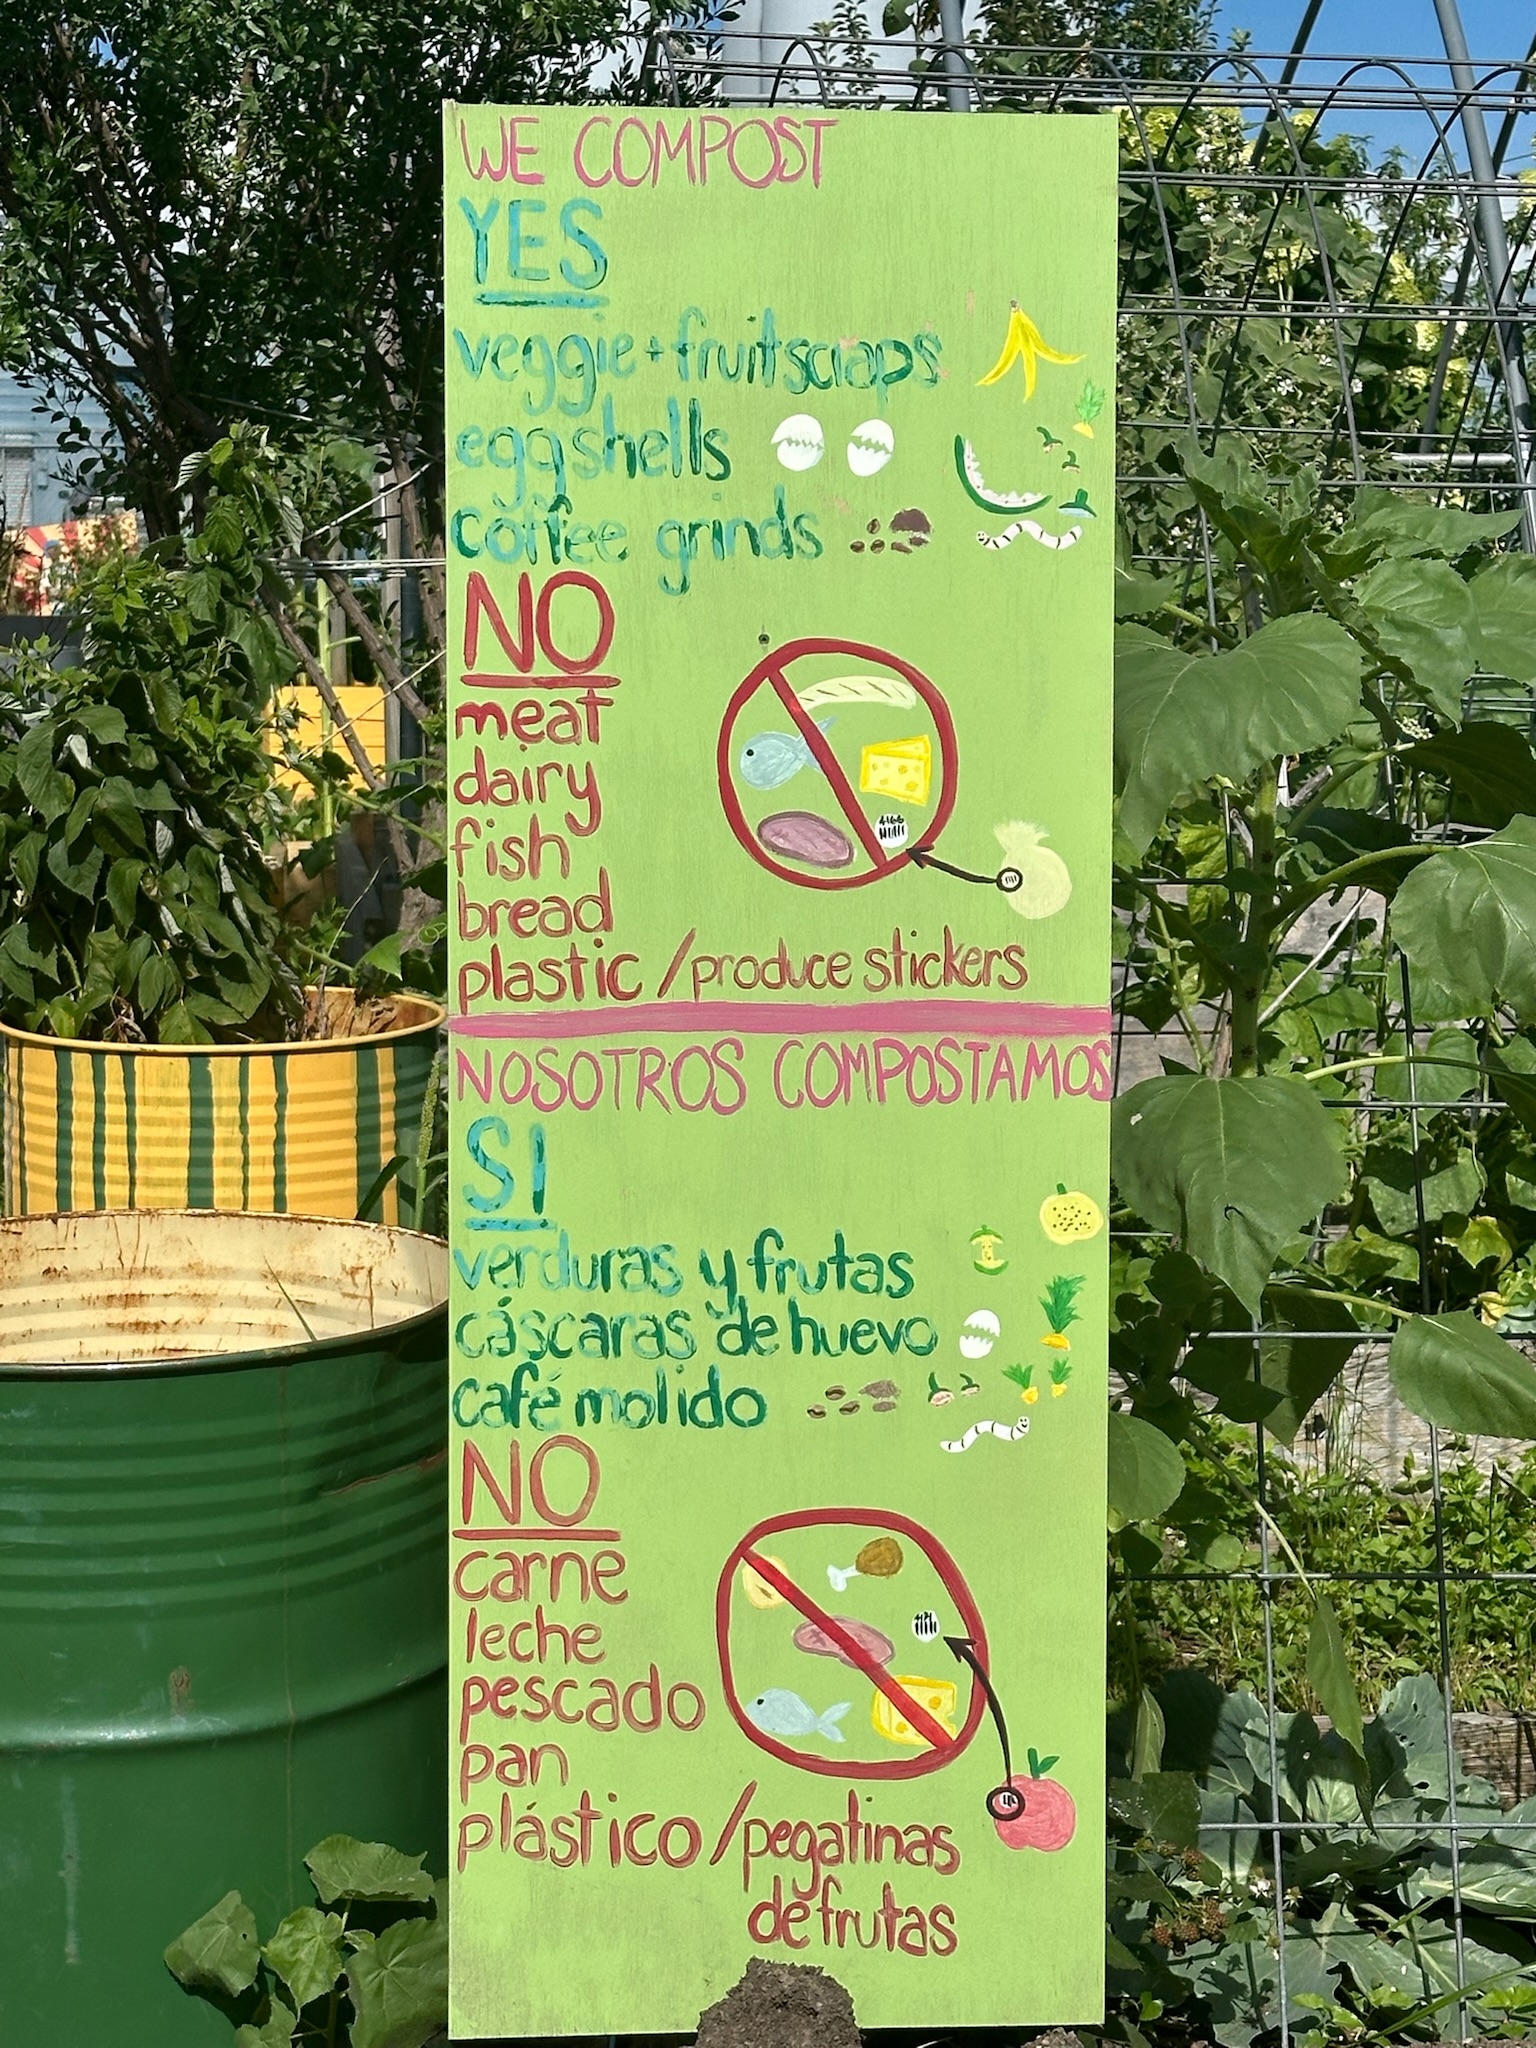 WE COMPOST
YES
veggie + fruit scraps
eggshells
coffee grinds
NO
meat
dairy
fish
bread
4166
plastic / produce stickers
NOSOTROS COMPOSTAMOS
SI
verduras y frutas
cáscaras de huevo
café molido
NO
carne
leche
pescado
pan
plástico / pegatinas
de frutas